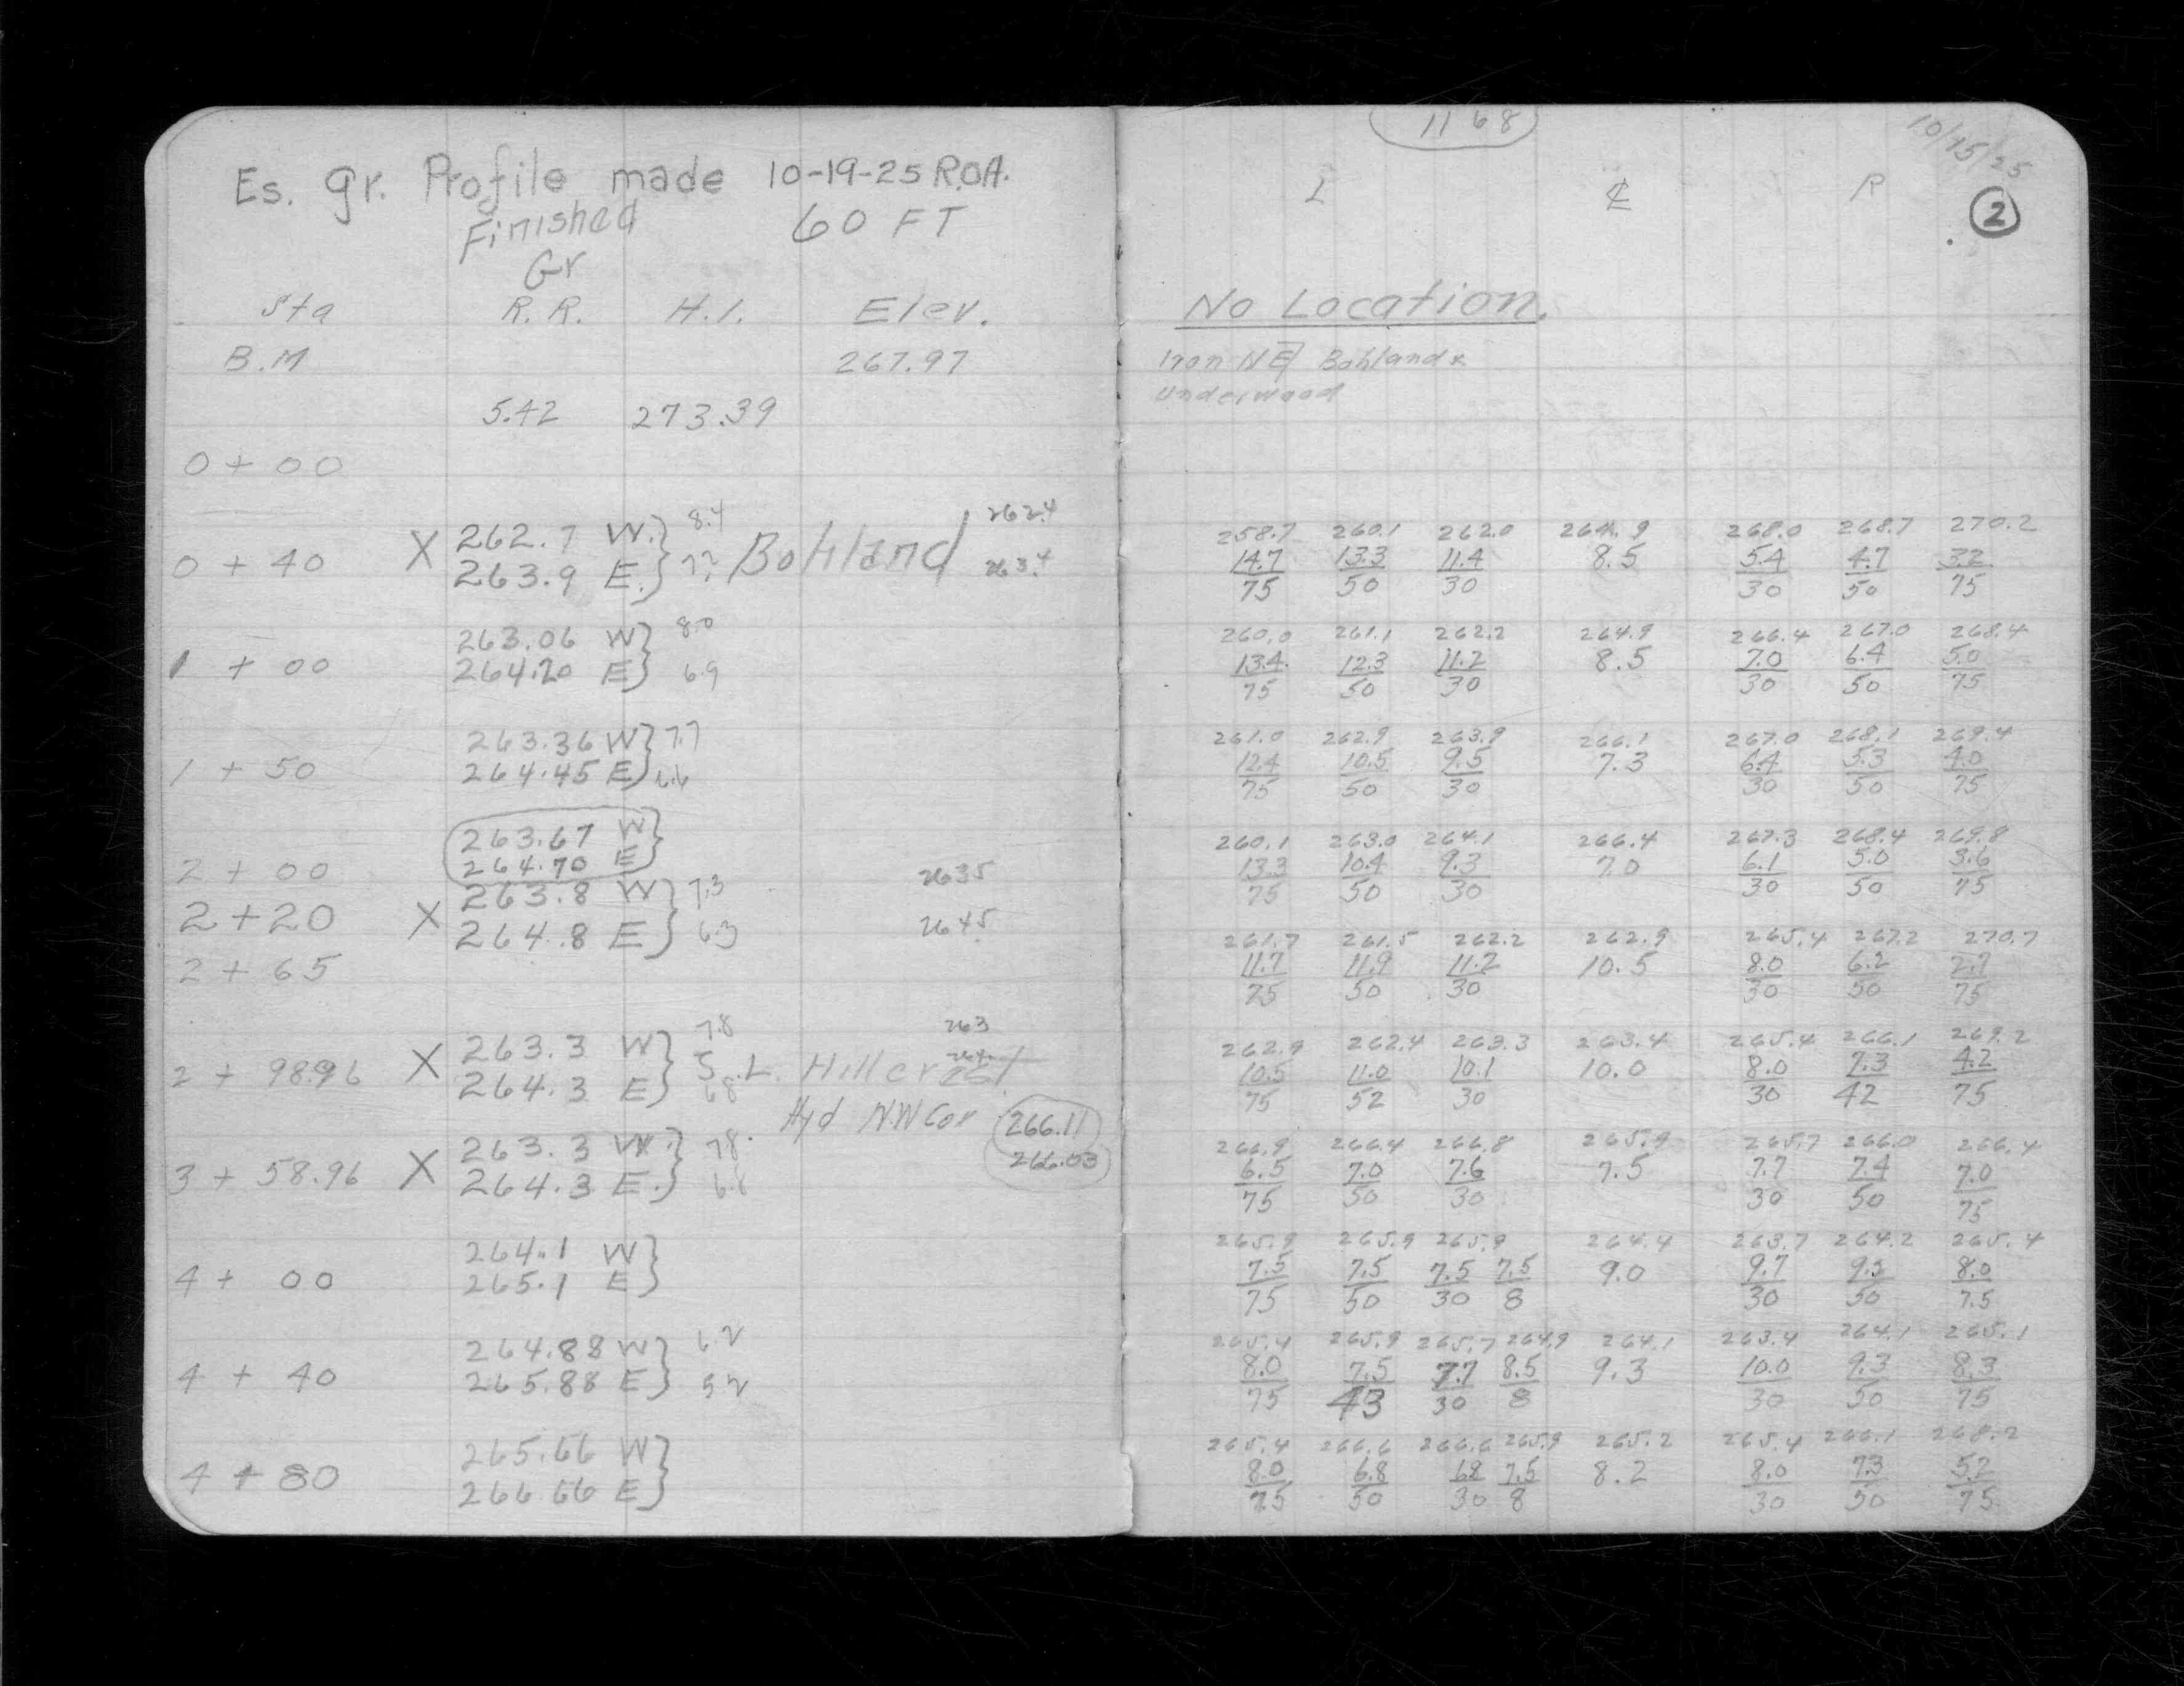 Es. gr. Profile made 10-19-25 R.O.A.
Finished 60 FT
Gr
Sta R.R. H.I. Elev.
B.M 267.97
5.42 273.39
0+00
262.4
X 262.7 W. 8.4 Bohland
0+40 263.9 E. 263.4
263.06 W 8.0
1+00 264.20 E 6.9
263.36 W 7.7
1+50 264.45 E 6.6
263.67 W
2+00 264.70 E
263.8 W 7.3 263.5
2+20 X 264.8 E 6.3 264.5
2+65
263.3 W 7.8 263
2+98.96 X 264.3 E 6.8 S.L. Hillcrest
Hyd N.W Cor 266.11
263.3 W. 7.8 266.03
3+58.96 X 264.3 E. 6.8
264.1 W
4+00 265.1 E
264.88 W 6.2
4+40 265.88 E 5.2
265.66 W
4+80 266.66 E
1168
10/15/25
L ℄ R
2
No Location.
Iron NE Bohland &
Underwood
258.7 260.1 262.0 264.9 268.0 268.7 270.2
14.7 13.3 11.4 8.5 5.4 4.7 3.2
75 50 30 30 50 75
260.0 261.1 262.2 264.9 266.4 267.0 268.4
13.4 12.3 11.2 8.5 7.0 6.4 5.0
75 50 30 30 50 75
261.0 262.9 263.9 266.1 267.0 268.1 269.4
12.4 10.5 9.5 7.3 6.4 5.3 4.0
75 50 30 30 50 75
260.1 263.0 264.1 266.4 267.3 268.4 269.8
13.3 10.4 9.3 7.0 6.1 5.0 3.6
75 50 30 30 50 75
261.7 261.5 262.2 262.9 265.4 267.2 270.7
11.7 11.9 11.2 10.5 8.0 6.2 2.7
75 50 30 30 50 75
262.9 262.4 263.3 263.4 265.4 266.1 269.2
10.5 11.0 10.1 10.0 8.0 7.3 4.2
75 52 30 30 42 75
266.9 266.4 266.8 265.9 265.7 266.0 266.4
6.5 7.0 7.6 7.5 7.7 7.4 7.0
75 50 30 30 50 75
265.9 265.9 265.9 264.4 263.7 264.2 265.4
7.5 7.5 7.5 7.5 9.0 9.7 9.2 8.0
75 50 30 8 30 50 7.5
265.4 265.9 265.7 264.9 264.1 263.4 264.1 265.1
8.0 7.5 7.7 8.5 9.3 10.0 9.3 8.3
75 43 30 8 30 50 75
265.4 266.6 266.6 265.9 265.2 265.4 266.1 268.2
8.0 6.8 6.8 7.5 8.2 8.0 7.3 5.2
75 50 30 8 30 50 75